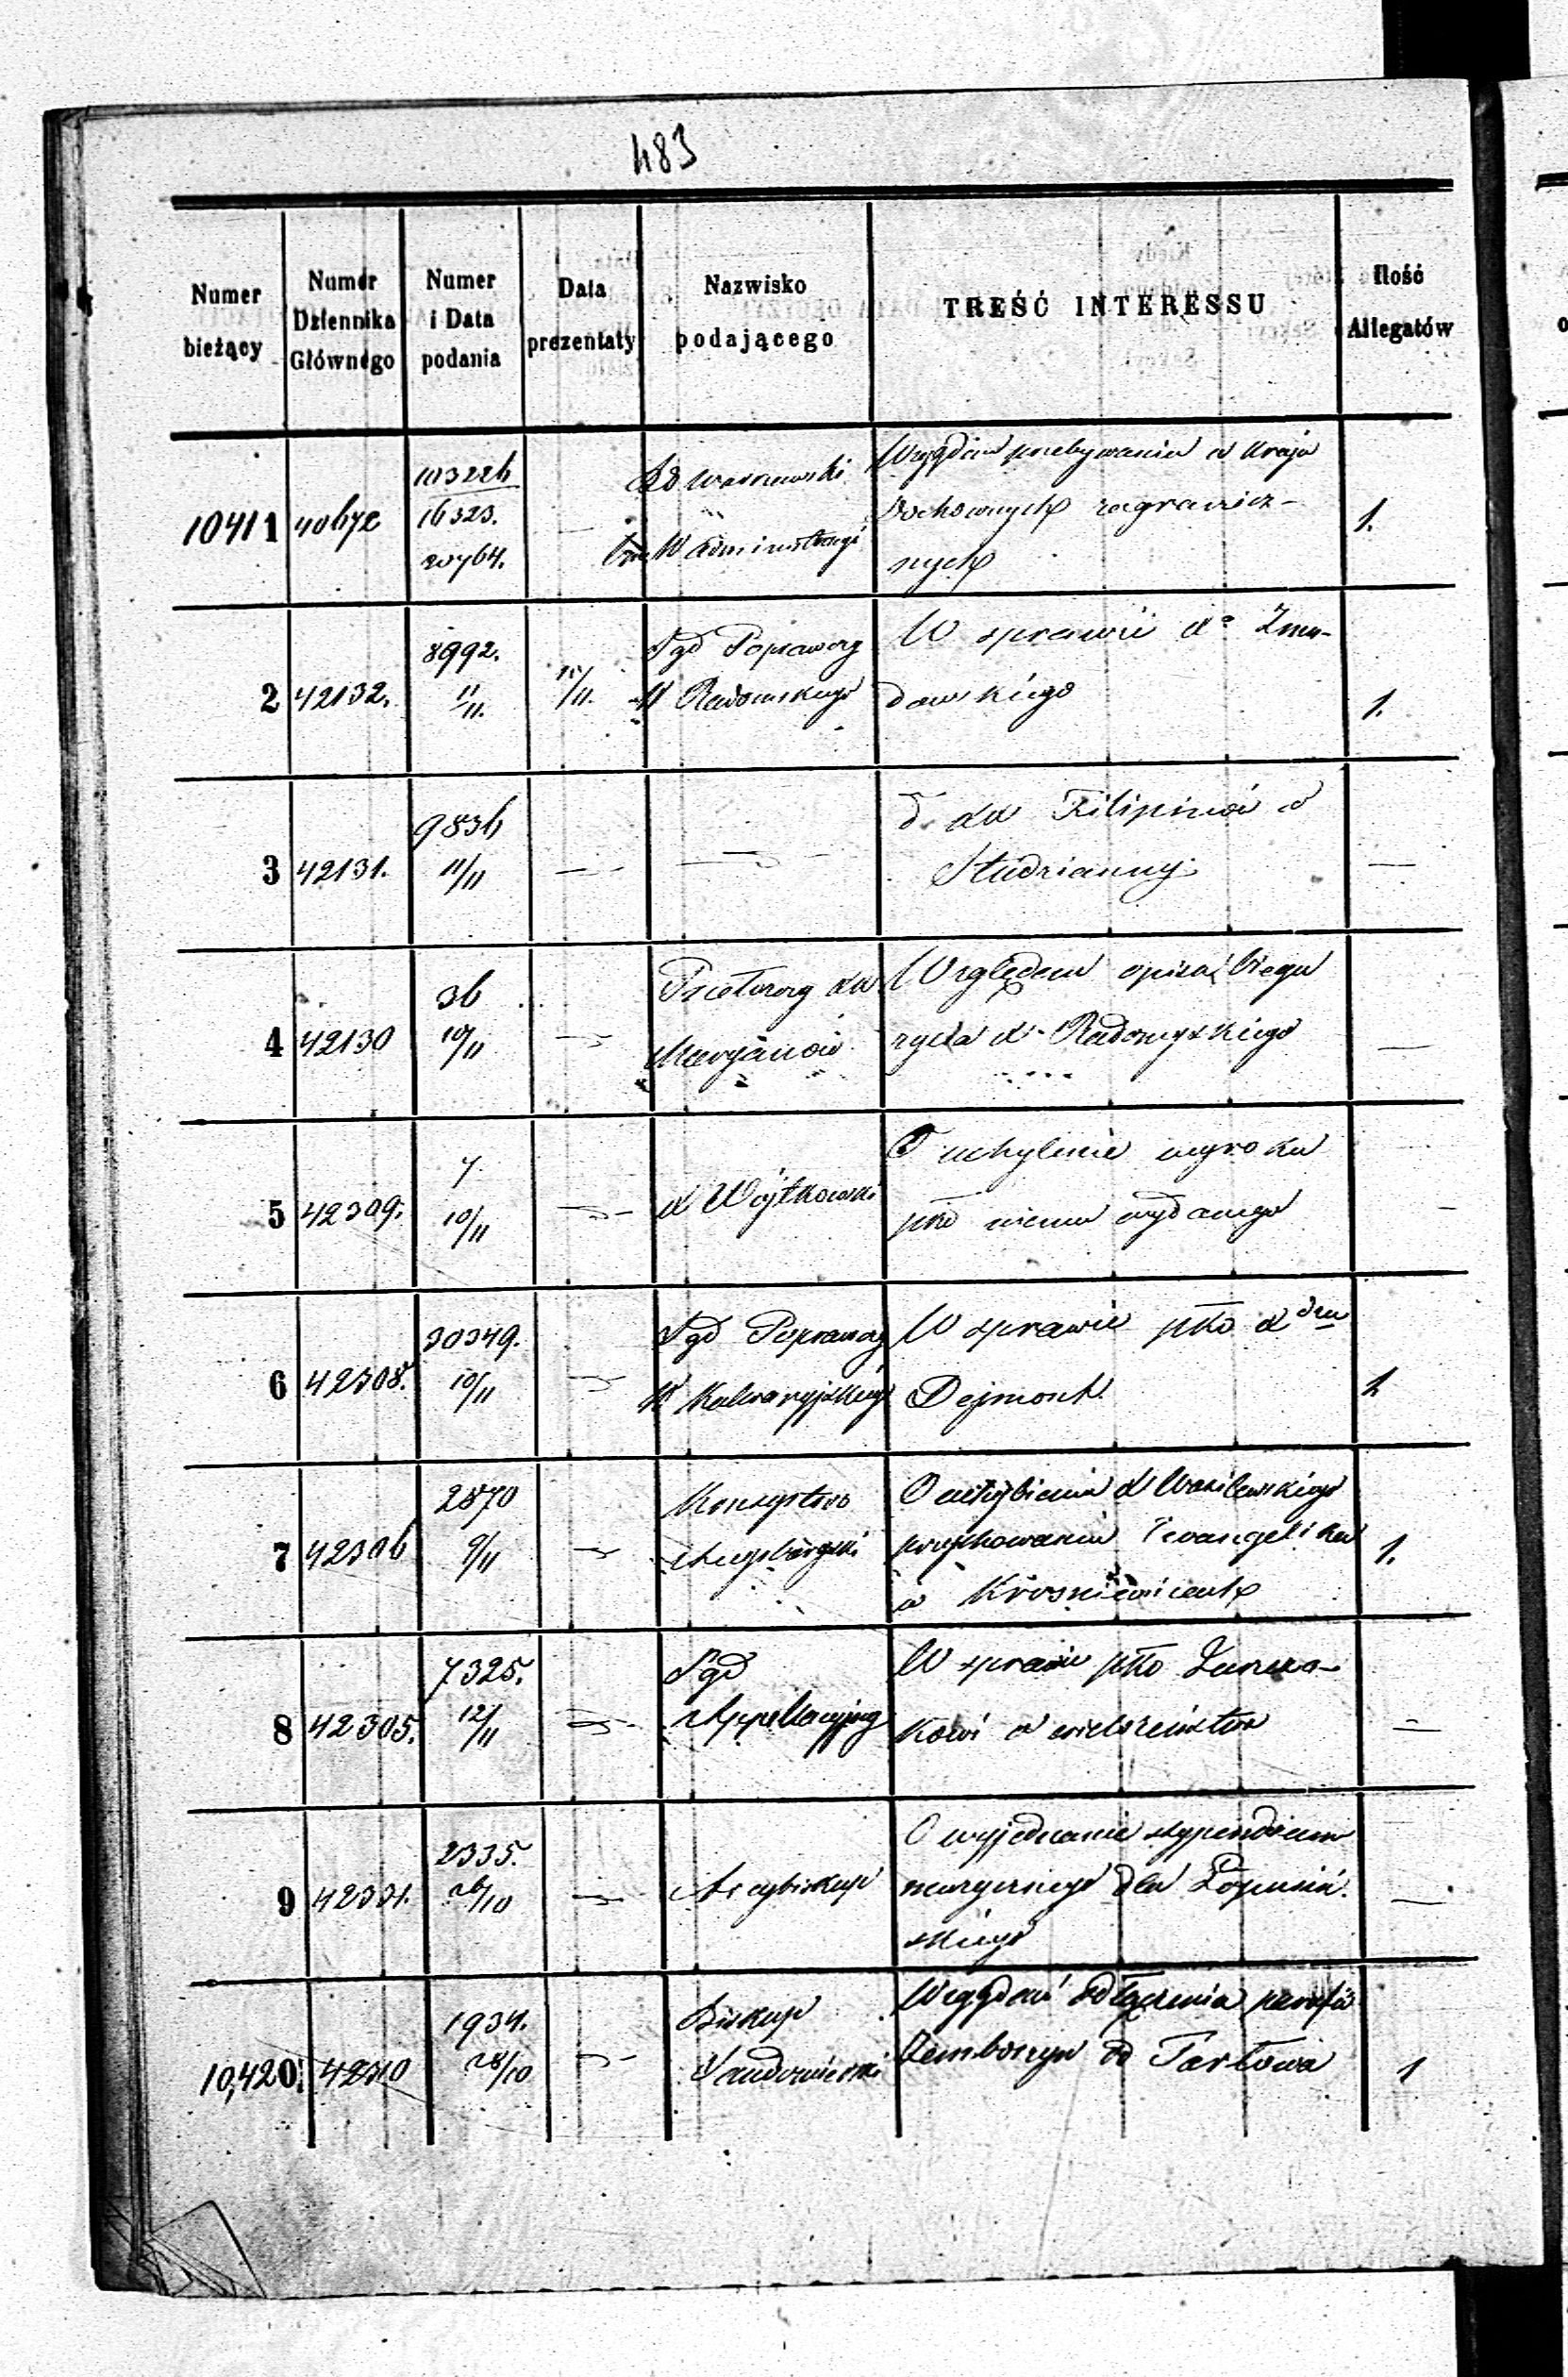 483
Numer bieżący
Numer Dziennika Głównego
Numer i Data podania
Data prezentaty
Nazwisko podającego
TREŚĆ INTERESSU
Ilość Allegatów
10411 40672 103226 16323. 20764.
Rd Warszawski
W Administracyi
Względem przebywania w Kraju
Duchownych zagranicz-
nych
1.
2 42132. 8992. 11/11. 15/11.
Sąd Poprawczy
W Radomskiego
W sprawie Xa Żmu-
dowskiego
1.
3 42131. 9836 11/11
d. XX Filipinów w
Studzianny
4 42130 36 10/11
Przełożony XX
Maryanów
Względem opisać biegu
życia X. Radomyskiego
5 42309. 7 10/11
X Wojtkowski
O uchylenie wyroku
pko niemu wydanego
6 42308. 30349. 10/11
Sąd Poprawczy
W Kalwaryjskiego
W sprawie pko X dzu
Dejmont.
1.
7 42306 2870 9/11
Konsystorz
Augsburgski
O uchybienie X Wasilewskiego
pochowaniu Ewangelika
w Krośniewicach
1.
8 42305. 7325. 12/11
Sąd
Appellacyjny
W sprawie pko
kowi o
9 42331. 2335. 26/10
Arcybiskup
O wyjednanie stypendium
dla Łopusiń-
skiego
10,420. 42310 1934. 28/10
Biskup
Sandomierski
Względem odłączenia parafii
od Tarłowa
1